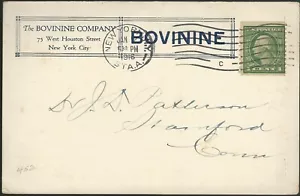 The BOVININE COMPANY
75 West Houston Street
New York City
BOVININE
NEW YORK, N.Y.
JAN
PM
1916
STA.
C
CENTS
Dr J. D. Patterson
Stanford
Conn